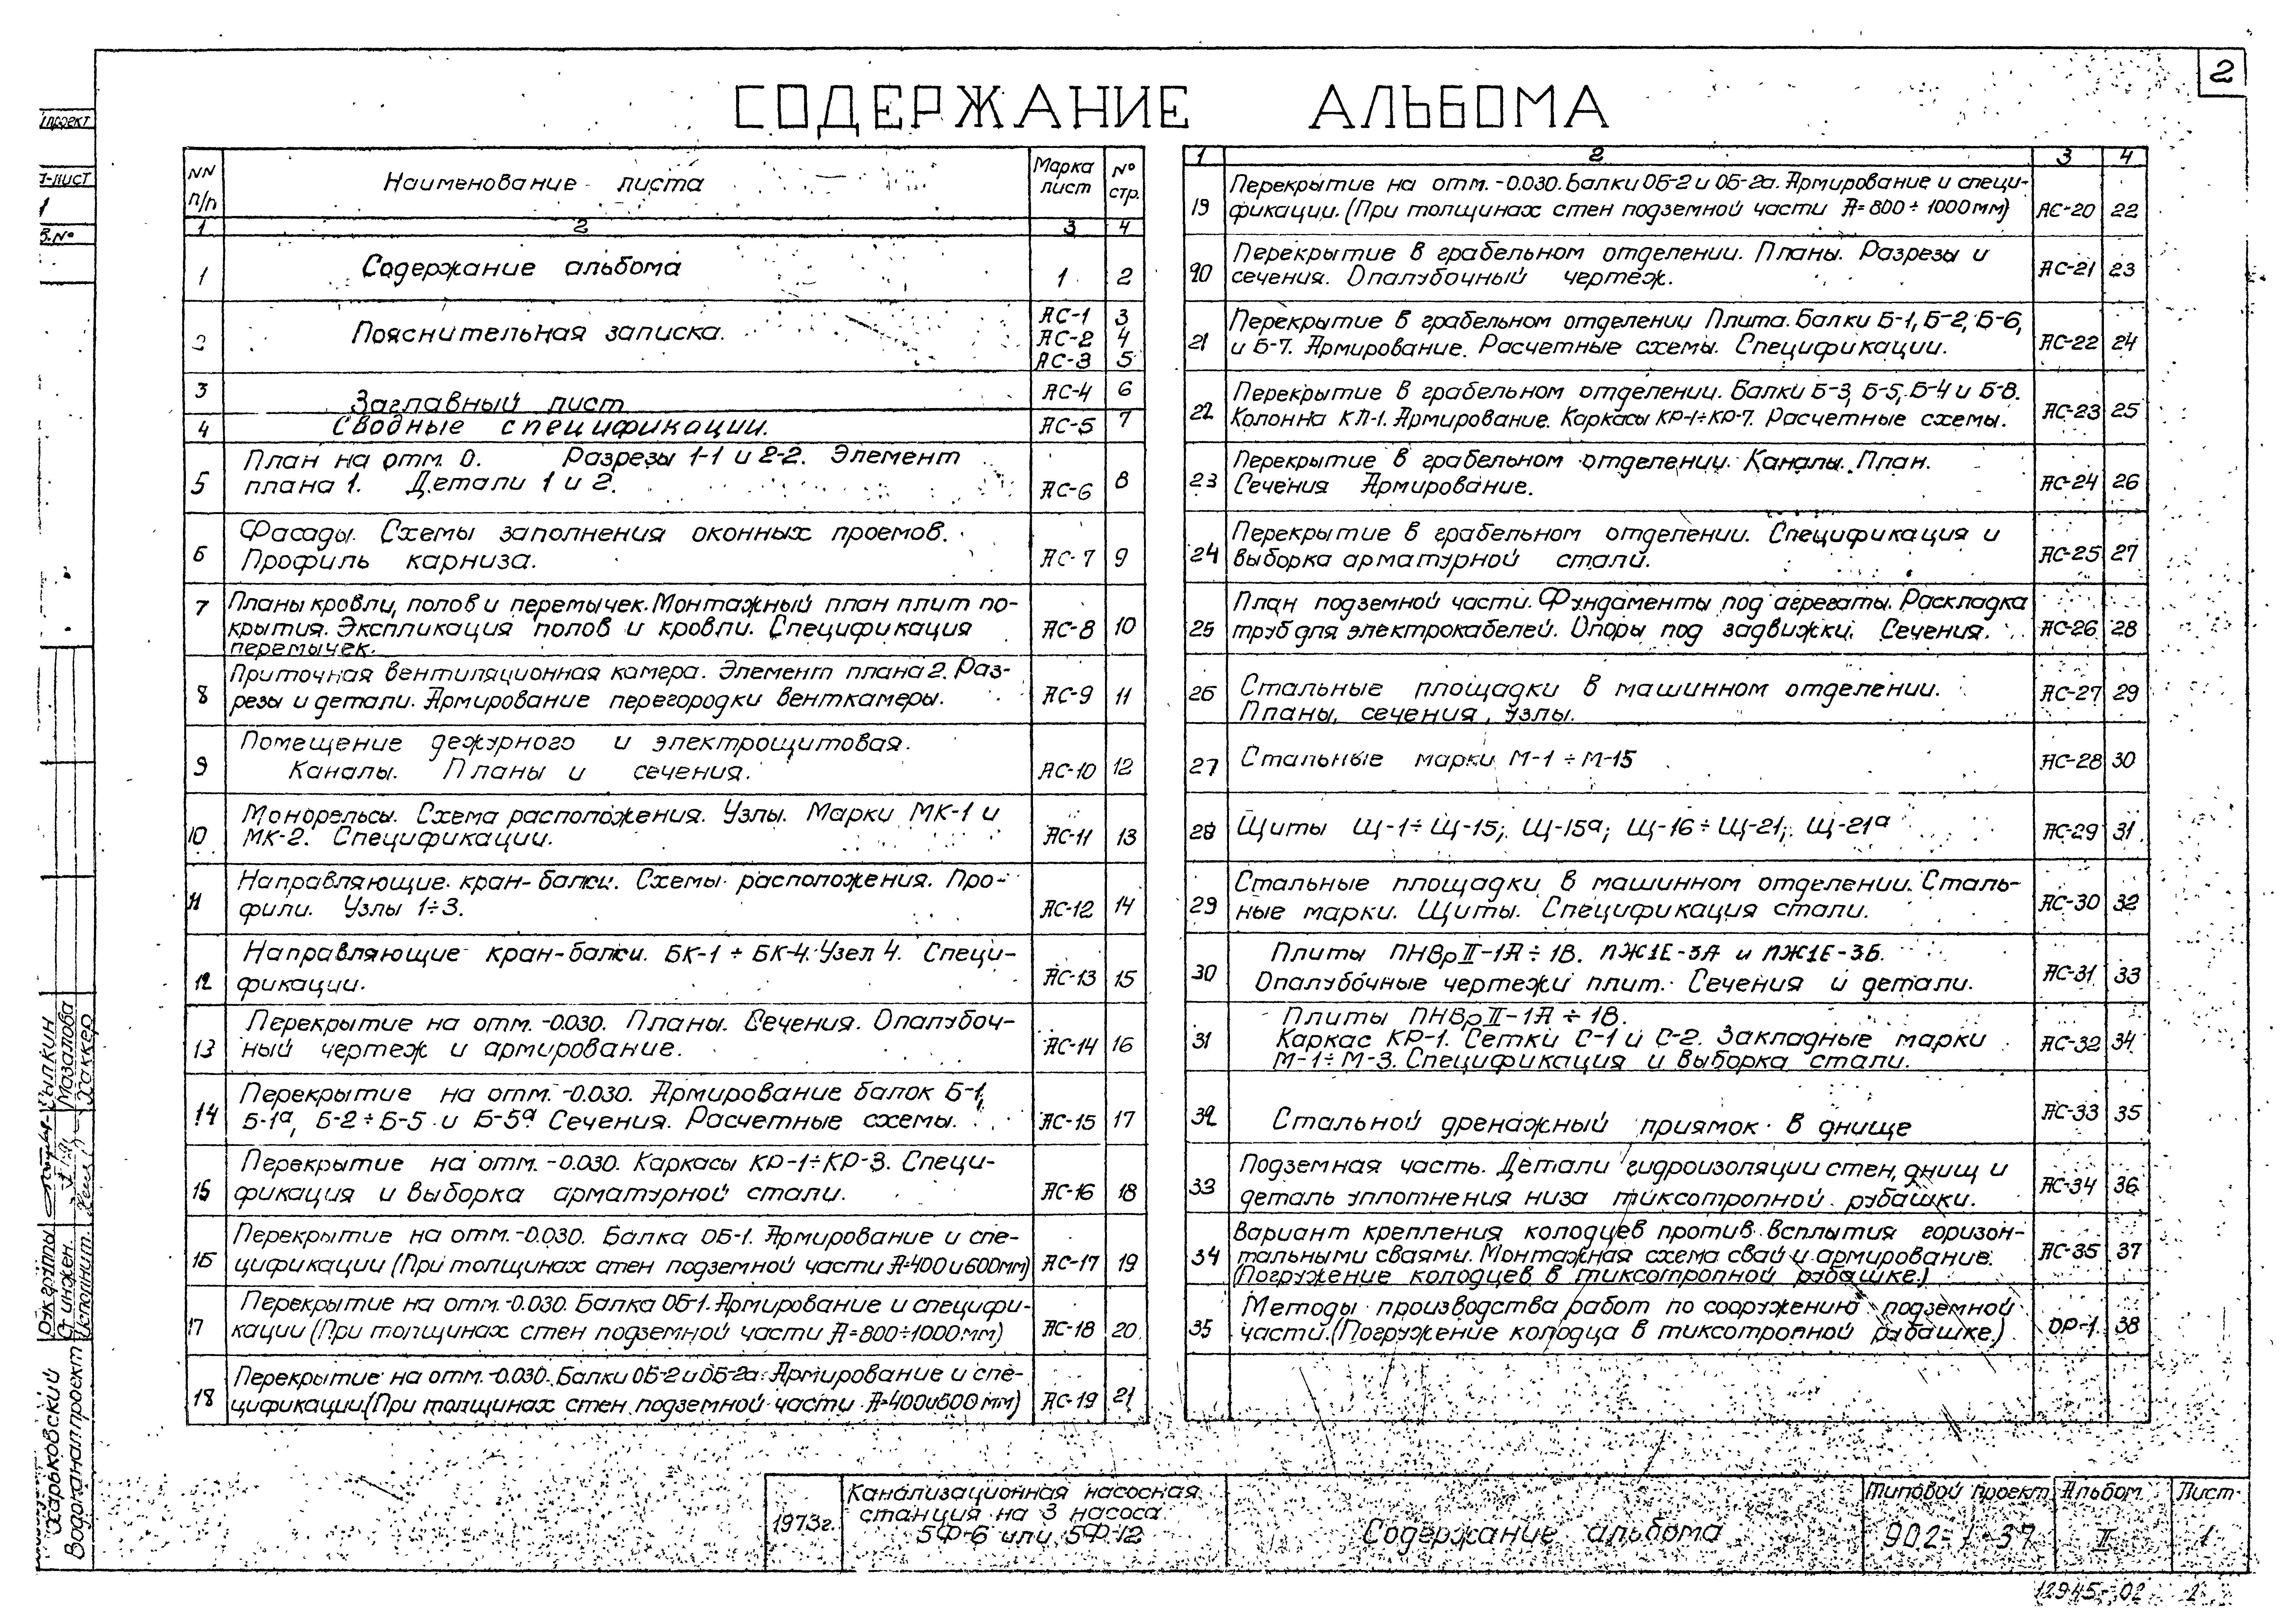 2
СОДЕРЖАНИЕ АЛЬБОМА
NN п/п
Наименование листа
Марка лист
№ стр.
1 2 3 4
1 Содержание альбома 1 2
2 Пояснительная записка. АС-1 3
АС-2 4
АС-3 5
3 Заглавный лист АС-4 6
4 Сводные спецификации. АС-5 7
План на отм. 0. Разрезы 1-1 и 2-2. Элемент
5 плана 1. Детали 1 и 2. АС-6 8
Фасады. Схемы заполнения оконных проемов.
6 Профиль карниза. АС-7 9
7 Планы кровли, полов и перемычек. Монтажный план плит по-
крытия. Экспликация полов и кровли. Спецификация АС-8 10
перемычек.
Приточная вентиляционная камера. Элемент плана 2. Раз-
8 резы и детали. Армирование перегородки венткамеры. АС-9 11
Помещение дежурного и электрощитовая.
9 Каналы. Планы и сечения. АС-10 12
Монорельсы. Схема расположения. Узлы. Марки МК-1 и
10 МК-2. Спецификации. АС-11 13
Направляющие кран-балки. Схемы расположения. Про-
11 фили. Узлы 1÷3. АС-12 14
Направляющие кран-балки. БК-1 ÷ БК-4. Узел 4. Специ-
12 фикации. АС-13 15
Перекрытие на отм. -0.030. Планы. Сечения. Опалубоч-
13 ный чертеж и армирование. АС-14 16
Перекрытие на отм. -0.030. Армирование балок Б-1,
14 Б-1а, Б-2 ÷ Б-5 и Б-5а Сечения. Расчетные схемы. АС-15 17
Перекрытие на отм. -0.030. Каркасы КР-1÷КР-3. Специ-
15 фикация и выборка арматурной стали. АС-16 18
Перекрытие на отм. -0.030. Балка ОБ-1. Армирование и спе-
16 цификации (При толщинах стен подземной части А=400 и 600мм) АС-17 19
Перекрытие на отм. -0.030. Балка ОБ-1. Армирование и специфи-
17 кации (При толщинах стен подземной части А=800÷1000мм) АС-18 20
Перекрытие на отм. -0.030. Балки ОБ-2 и ОБ-2а. Армирование и спе-
18 цификации (При толщинах стен подземной части А=400и600мм) АС-19 21
1 2 3 4
Перекрытие на отм. -0.030. Балки ОБ-2 и ОБ-2а. Армирование и специ-
19 фикации. (При толщинах стен подземной части А=800÷1000мм) АС-20 22
Перекрытие в грабельном отделении. Планы. Разрезы и
20 сечения. Опалубочный чертеж. АС-21 23
Перекрытие в грабельном отделении Плита. Балки Б-1, Б-2, Б-6,
21 и Б-7. Армирование. Расчетные схемы. Спецификации. АС-22 24
Перекрытие в грабельном отделении. Балки Б-3, Б-5, Б-4 и Б-8.
22 Колонна КЛ-1. Армирование. Каркасы КР-1÷КР-7. Расчетные схемы. АС-23 25
Перекрытие в грабельном отделении. Каналы. План.
23 Сечения Армирование. АС-24 26
Перекрытие в грабельном отделении. Спецификация и
24 выборка арматурной стали. АС-25 27
План подземной части. Фундаменты под агрегаты. Раскладка
25 труб для электрокабелей. Опоры под задвижки. Сечения. АС-26 28
26 Стальные площадки в машинном отделении. АС-27 29
Планы, сечения, узлы.
27 Стальные марки М-1 ÷ М-15 АС-28 30
28 Щиты Щ-1÷Щ-15; Щ-15а; Щ-16÷Щ-21; Щ-21а АС-29 31
Стальные площадки в машинном отделении. Сталь-
29 ные марки. Щиты. Спецификация стали. АС-30 32
Плиты ПНВрII-1А÷1В. ПЖ1Е-3А и ПЖ1Е-3Б.
30 Опалубочные чертежи плит. Сечения и детали. АС-31 33
Плиты ПНВрII-1А÷1В.
31 Каркас КР-1. Сетки С-1 и С-2. Закладные марки АС-32 34
М-1÷М-3. Спецификация и выборка стали.
32 Стальной дренажный приямок в днище АС-33 35
Подземная часть. Детали гидроизоляции стен, днищ и
33 деталь уплотнения низа тиксотропной рубашки. АС-34 36
Вариант крепления колодцев против всплытия горизон-
34 тальными сваями. Монтажная схема свай и армирование. АС-35 37
(Погружение колодцев в тиксотропной рубашке.)
Методы производства работ по сооружению подземной
35 части. (Погружение колодца в тиксотропной рубашке.) ОР-1 38
1973г.
Канализационная насосная
станция на 3 насоса
5Ф-6 или 5Ф-12
Содержание альбома
Типовой проект
902-1-37
Альбом
II
Лист
1
12945-02 2
проект
т-лист
1
в.№
Харьковский
Водоканалпроект
Рук. группы
Ст. инжен. Мазалова
Исполнит. Хаккер